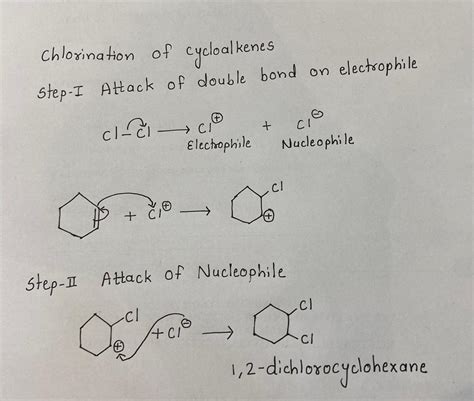 Chlorination of cycloalkenes
Step-I Attack of double bond on electrophile
Cl-Cl → Cl⊕ + Cl⊖
Electrophile Nucleophile
+ Cl⊕ → Cl ⊕
Step-II Attack of Nucleophile
Cl ⊕ + Cl⊖ → Cl Cl
1,2-dichlorocyclohexane